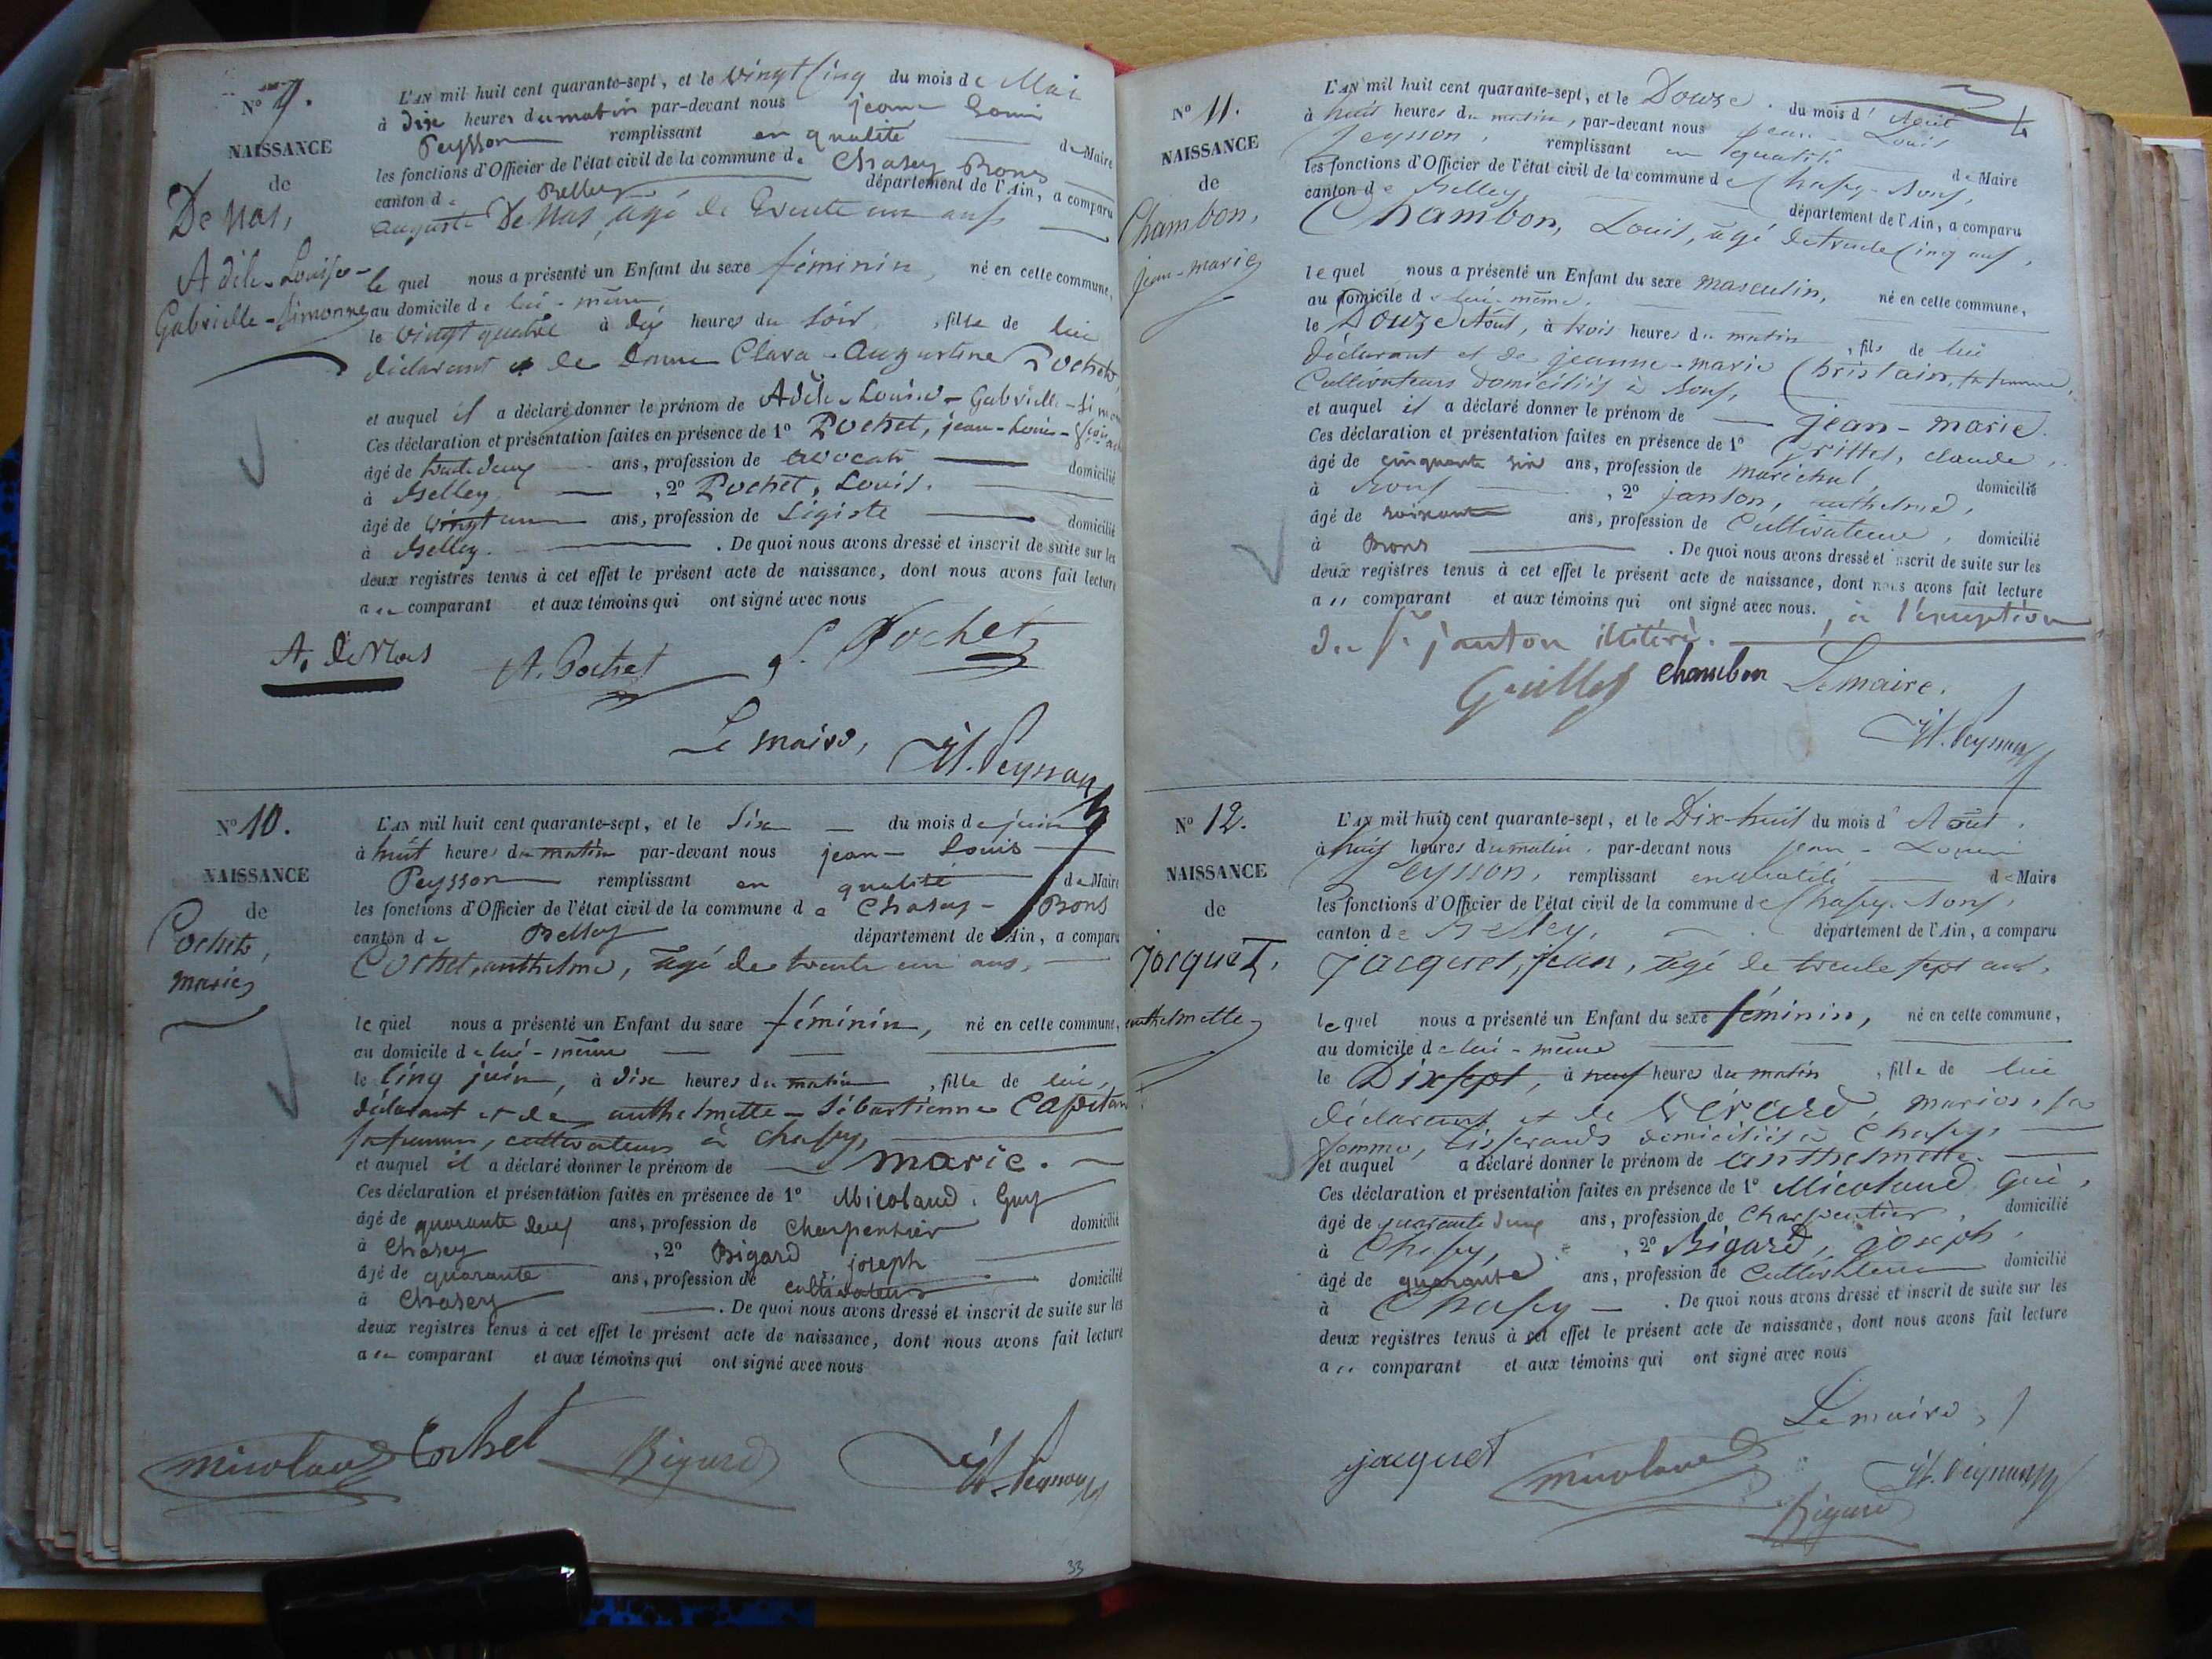 N° 9.
NAISSANCE
de
De Mas,
Adèle-Louise-
Gabrielle-Simonne
L'AN mil huit cent quarante-sept, et le vingt cinq du mois de Mai
à dix heures du matin par-devant nous jean Louis
Peysson remplissant en qualité de Maire
les fonctions d'Officier de l'état civil de la commune de Chasey Bons
canton de Belley département de l'Ain, a comparu
Auguste De Mas, agé de trente un ans
le quel nous a présenté un Enfant du sexe féminin, né en cette commune,
au domicile de lui-même
le vingt quatre à dix heures du soir, fille de lui
déclarant et de Donne Clara-Augustine Pochet,
et auquel il a déclaré donner le prénom de Adèle-Louise-Gabrielle-Simonne
Ces déclaration et présentation faites en présence de 1° Pochet, jean-Louis-
âgé de trente deux ans, profession de avocat domicilié
à Belley, 2° Pochet, Louis.
âgé de vingt un ans, profession de Légiste domicilié
à Belley. . De quoi nous avons dressé et inscrit de suite sur les
deux registres tenus à cet effet le présent acte de naissance, dont nous avons fait lecture
au comparant et aux témoins qui ont signé avec nous
A. DeMas A. Pochet L. Pochet
Le maire, Jl. Peysson
N° 10.
NAISSANCE
de
Cochet,
marie
L'AN mil huit cent quarante-sept, et le Six du mois de juin
à huit heures du matin par-devant nous jean-Louis
Peysson remplissant en qualité de Maire
les fonctions d'Officier de l'état civil de la commune de Chasey-Bons
canton de Belley département de l'Ain, a comparu
Cochet, anthelme, agé de trente un ans,
le quel nous a présenté un Enfant du sexe féminin, né en cette commune,
au domicile de lui-même
le Cinq juin, à dix heures du matin, fille de lui,
déclarant et de anthelmette-Sébastienne Capitan
sa femme, cultivateurs à Chasey,
et auquel il a déclaré donner le prénom de marie.
Ces déclaration et présentation faites en présence de 1° Micolaud, Guy
âgé de quarante deux ans, profession de Charpentier domicilié
à Chasey, 2° Bigard joseph
âgé de quarante ans, profession de cultivateur domicilié
à Chasey . De quoi nous avons dressé et inscrit de suite sur les
deux registres tenus à cet effet le présent acte de naissance, dont nous avons fait lecture
au comparant et aux témoins qui ont signé avec nous
micolaud Cochet Bigard Jl. Peysson
33
N° 11.
NAISSANCE
de
Chambon,
jean-marie
L'AN mil huit cent quarante-sept, et le Douze du mois d'Aout
à huit heures du matin, par-devant nous jean-Louis
Peysson, remplissant en qualité de Maire
les fonctions d'Officier de l'état civil de la commune de Chasey-Bons,
canton de Belley, département de l'Ain, a comparu
Chambon, Louis, agé de trente cinq ans,
le quel nous a présenté un Enfant du sexe masculin, né en cette commune,
au domicile de lui-même,
le Douze Aout, à trois heures du matin, fils de lui
déclarant et de jeanne-marie Christain, sa femme,
Cultivateurs domiciliés à Bons,
et auquel il a déclaré donner le prénom de jean-marie.
Ces déclaration et présentation faites en présence de 1° Grillet, claude,
âgé de cinquante six ans, profession de maréchal, domicilié
à Bons, 2° janton, anthelme,
âgé de soixante ans, profession de Cultivateur, domicilié
à Bons . De quoi nous avons dressé et inscrit de suite sur les
deux registres tenus à cet effet le présent acte de naissance, dont nous avons fait lecture
au comparant et aux témoins qui ont signé avec nous., à l'exception
du Sr janton illitéré.
chambon Le maire,
Jl. Peysson
N° 12.
NAISSANCE
de
Jacquet,
anthelmette
L'AN mil huit cent quarante-sept, et le Dix-huit du mois d'Aout,
à huit heures du matin, par-devant nous jean-Louis
Peysson, remplissant en qualité de Maire
les fonctions d'Officier de l'état civil de la commune de Chasey-Bons,
canton de Belley, département de l'Ain, a comparu
Jacquet, jean, agé de trente sept ans,
le quel nous a présenté un Enfant du sexe féminin, né en cette commune,
au domicile de lui-même
le Dix sept, à neuf heures du matin, fille de lui
déclarant et de Gérard, marie, sa
femme, tisserands domiciliés à Chasey,
et auquel a déclaré donner le prénom de anthelmette.
Ces déclaration et présentation faites en présence de 1° Micolaud Gui,
âgé de quarante deux ans, profession de Charpentier, domicilié
à Chasey, 2° Bigard, joseph,
âgé de quarante ans, profession de Cultivateur domicilié
à Chasey . De quoi nous avons dressé et inscrit de suite sur les
deux registres tenus à cet effet le présent acte de naissance, dont nous avons fait lecture
au comparant et aux témoins qui ont signé avec nous
Le maire,
jacquet micolaud Jl. Peysson
Bigard